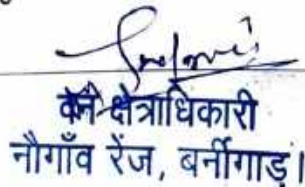 वन क्षेत्राधिकारी
नौगाँव रेंज, बर्नीगाड़।